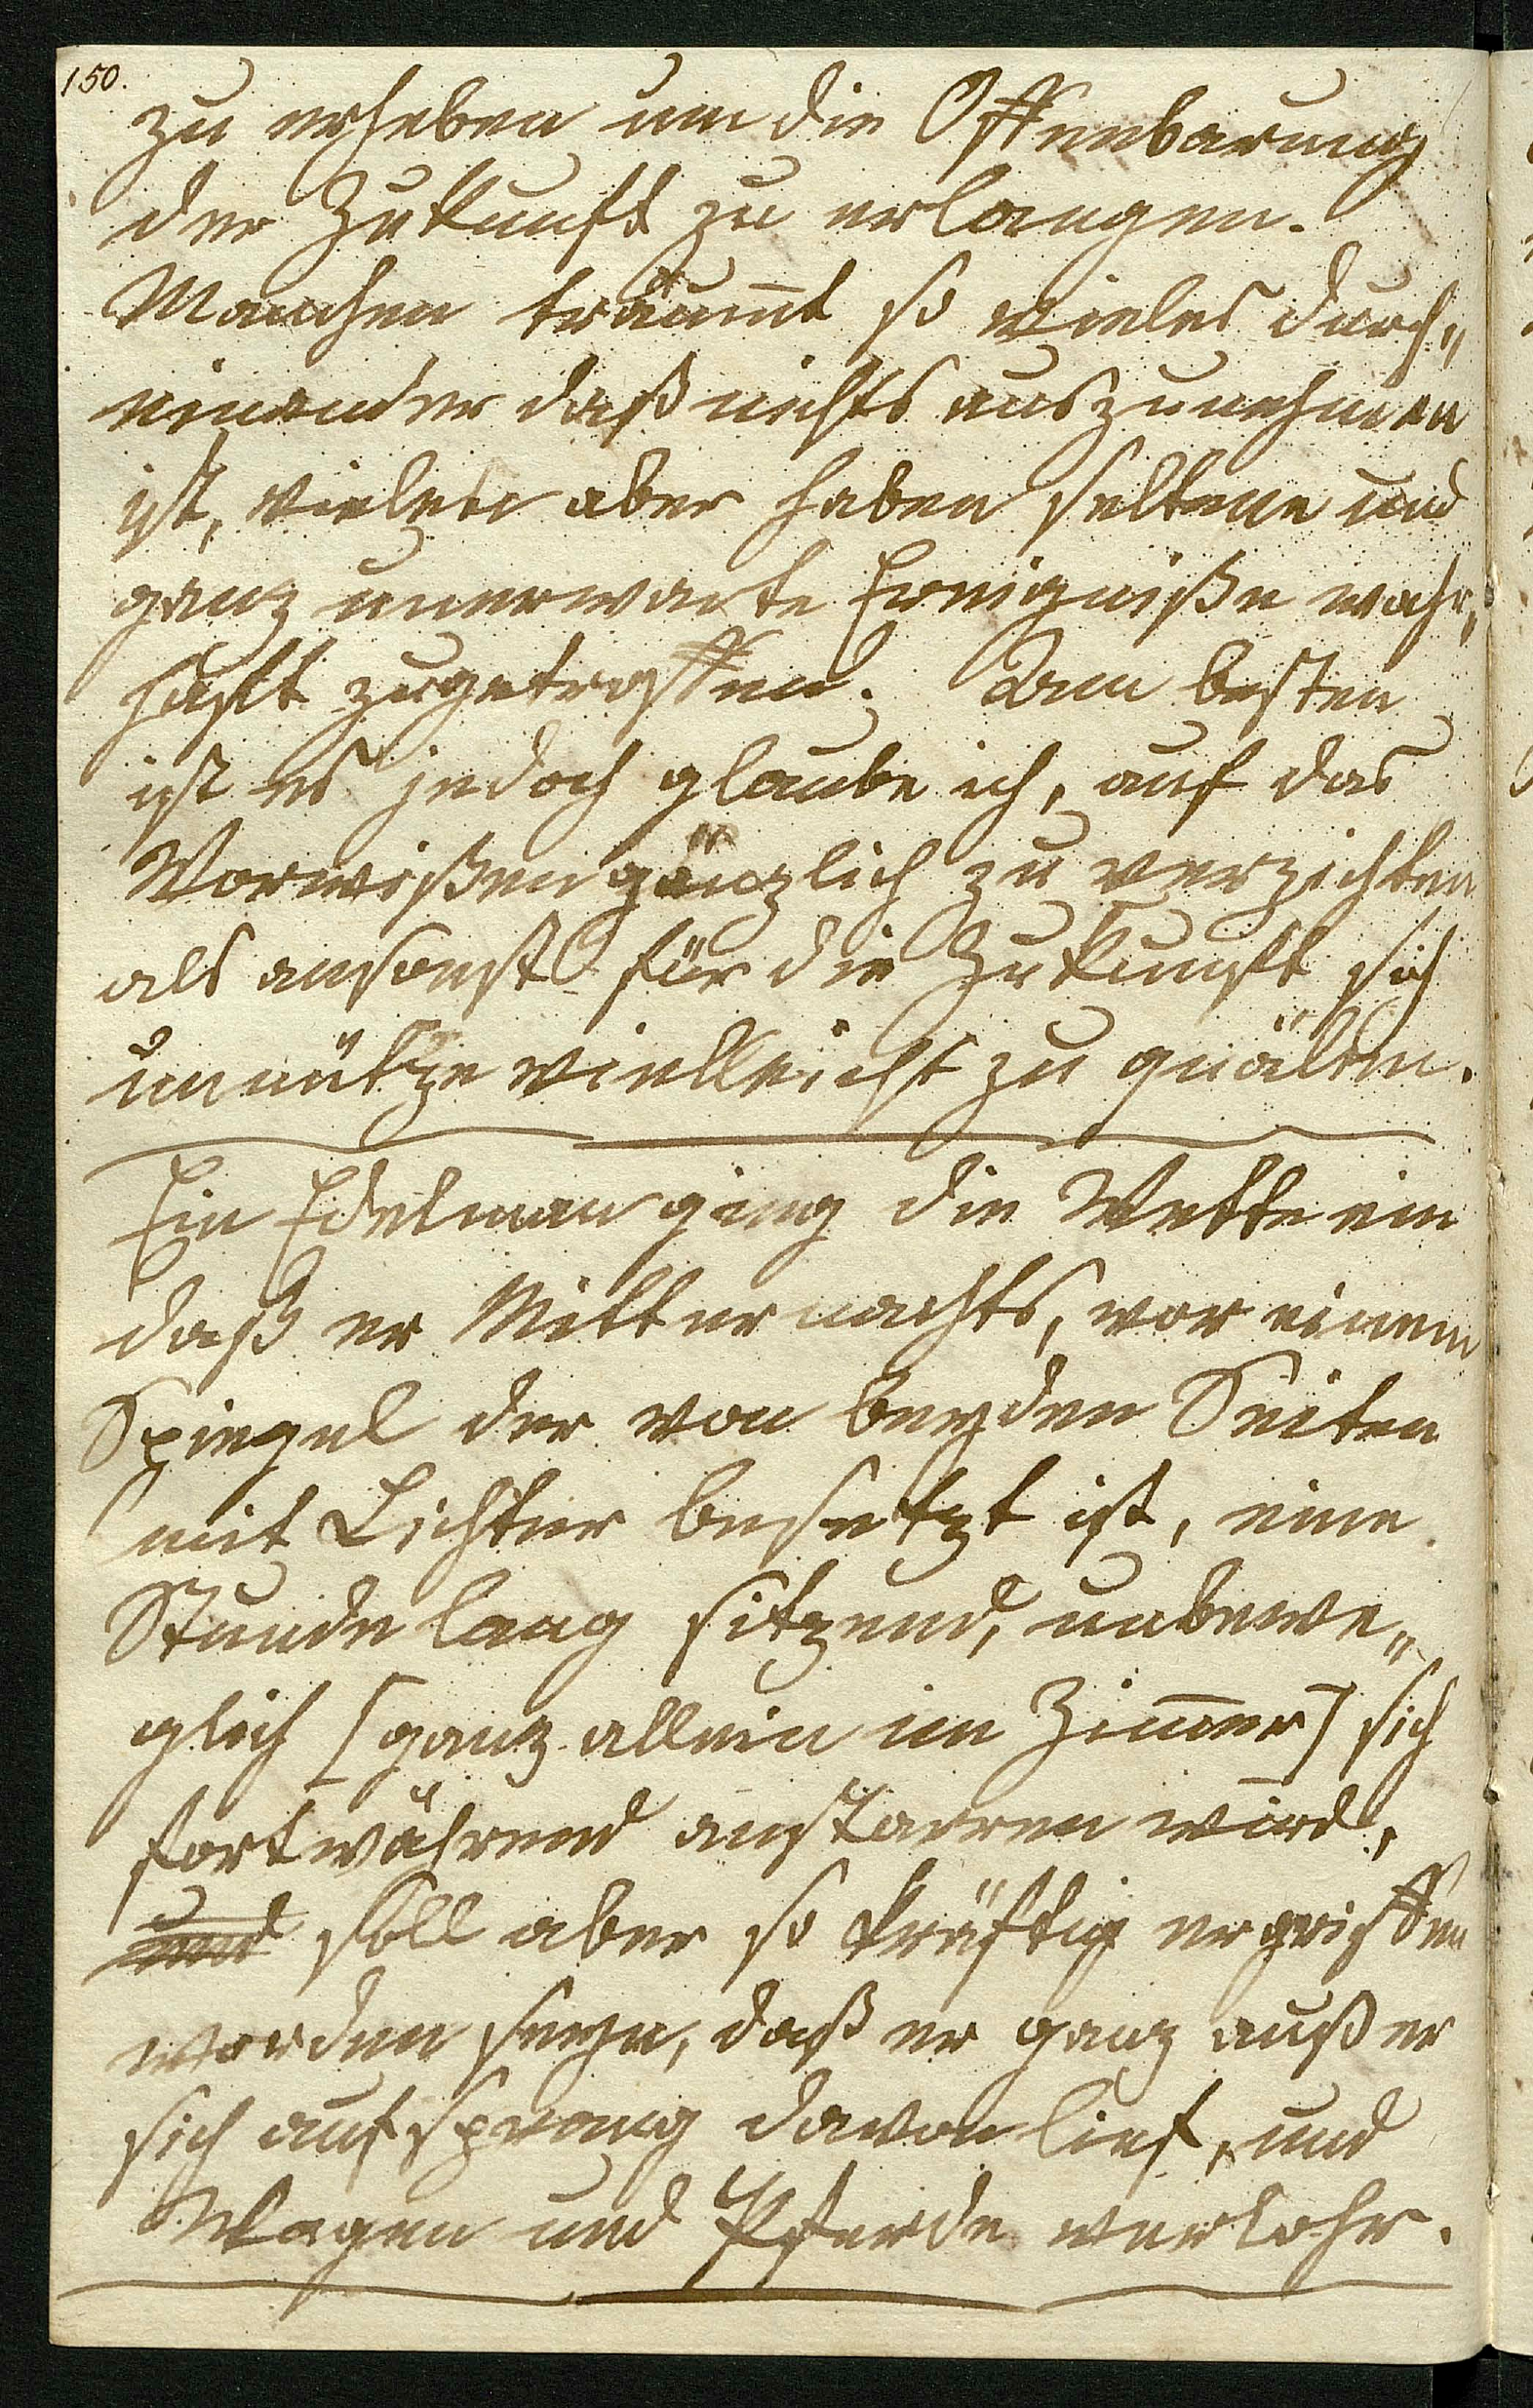 150.
zu erheben um die Offenbarung
der Zukunft zu erlangen.
Manchen träumt so vieles durch„
einander daß nichts auszunehmen
ist, vielen aber haben seltene und
ganz unerwarte Ereigniße wahr„
haft zugetroffen. Am besten
ist es jedoch glaube ich, auf das
Vorwißen gänzlich zu verzichten
als ansonst für die Zukunft sich
unnütze vielleicht zu quälen.
Ein Edelman ging die Wette ein
daß er Mitternachts, vor einem
Spiegel der von beyden Seiten
mit Lichter besetzt ist, eine
Stunde lang sitzend, unbewe„
glich [ganz allein im Zim̅er] sich
fortwährend anstarren wird,
und soll aber so kräftig ergriffen
worden seyn, daß er ganz außer
sich aufsprang davon lief, und
Wagen und Pferde verlohr.